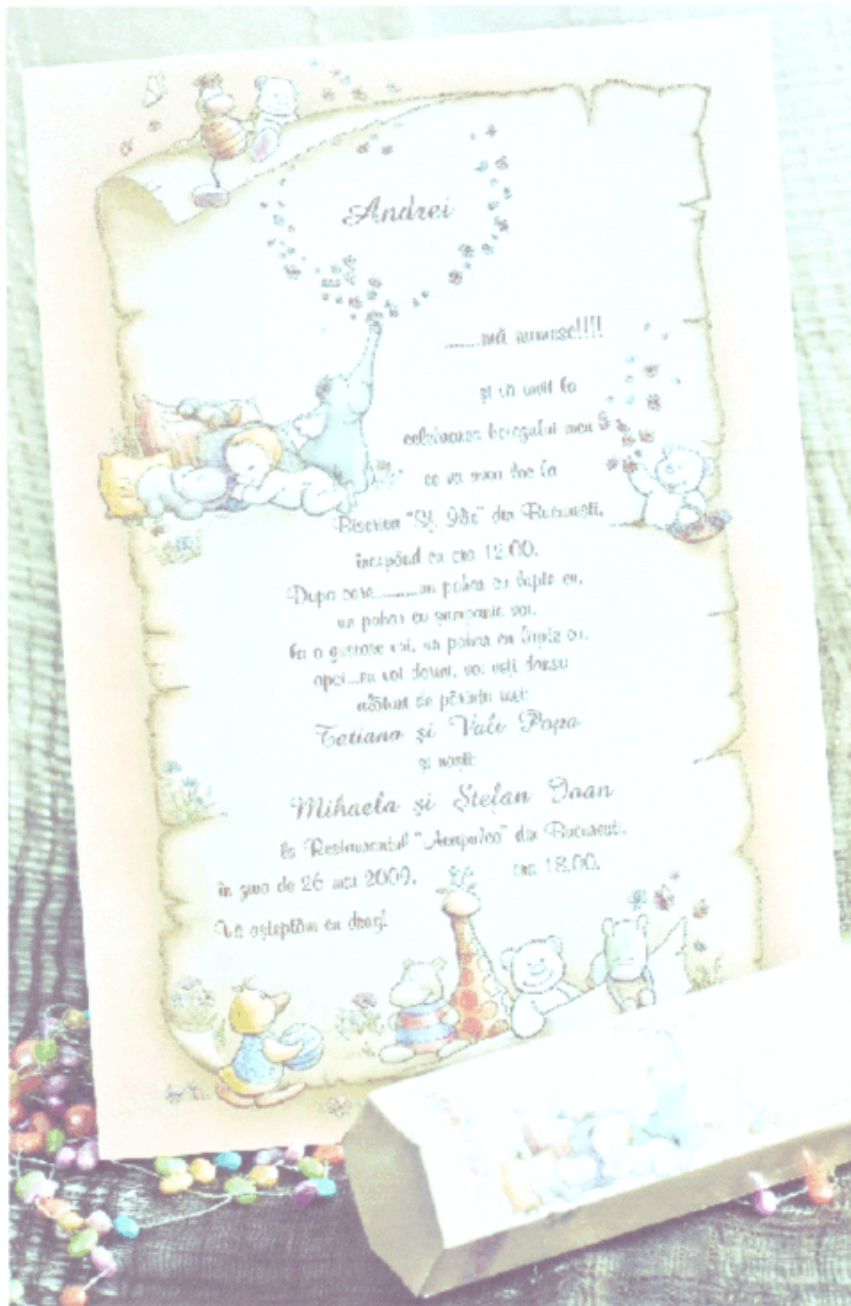 Andrei
.......mă numesc!!!!
și vă invit la
celebrarea botezului meu
ce va avea loc la
Biserica "Sf. Ilie" din București,
începând cu ora 12.00.
După care..........un pahar cu lapte eu,
un pahar cu șampanie voi,
la o gustare voi, un pahar cu lapte eu,
apoi...eu voi dormi, voi veți dansa
alături de părinții mei:
Tatiana și Vali Popa
și nașii:
Mihaela și Ștefan Ioan
la Restaurantul "Acapulco" din București,
în ziua de 26 mai 2009, ora 18.00.
Vă așteptăm cu drag!